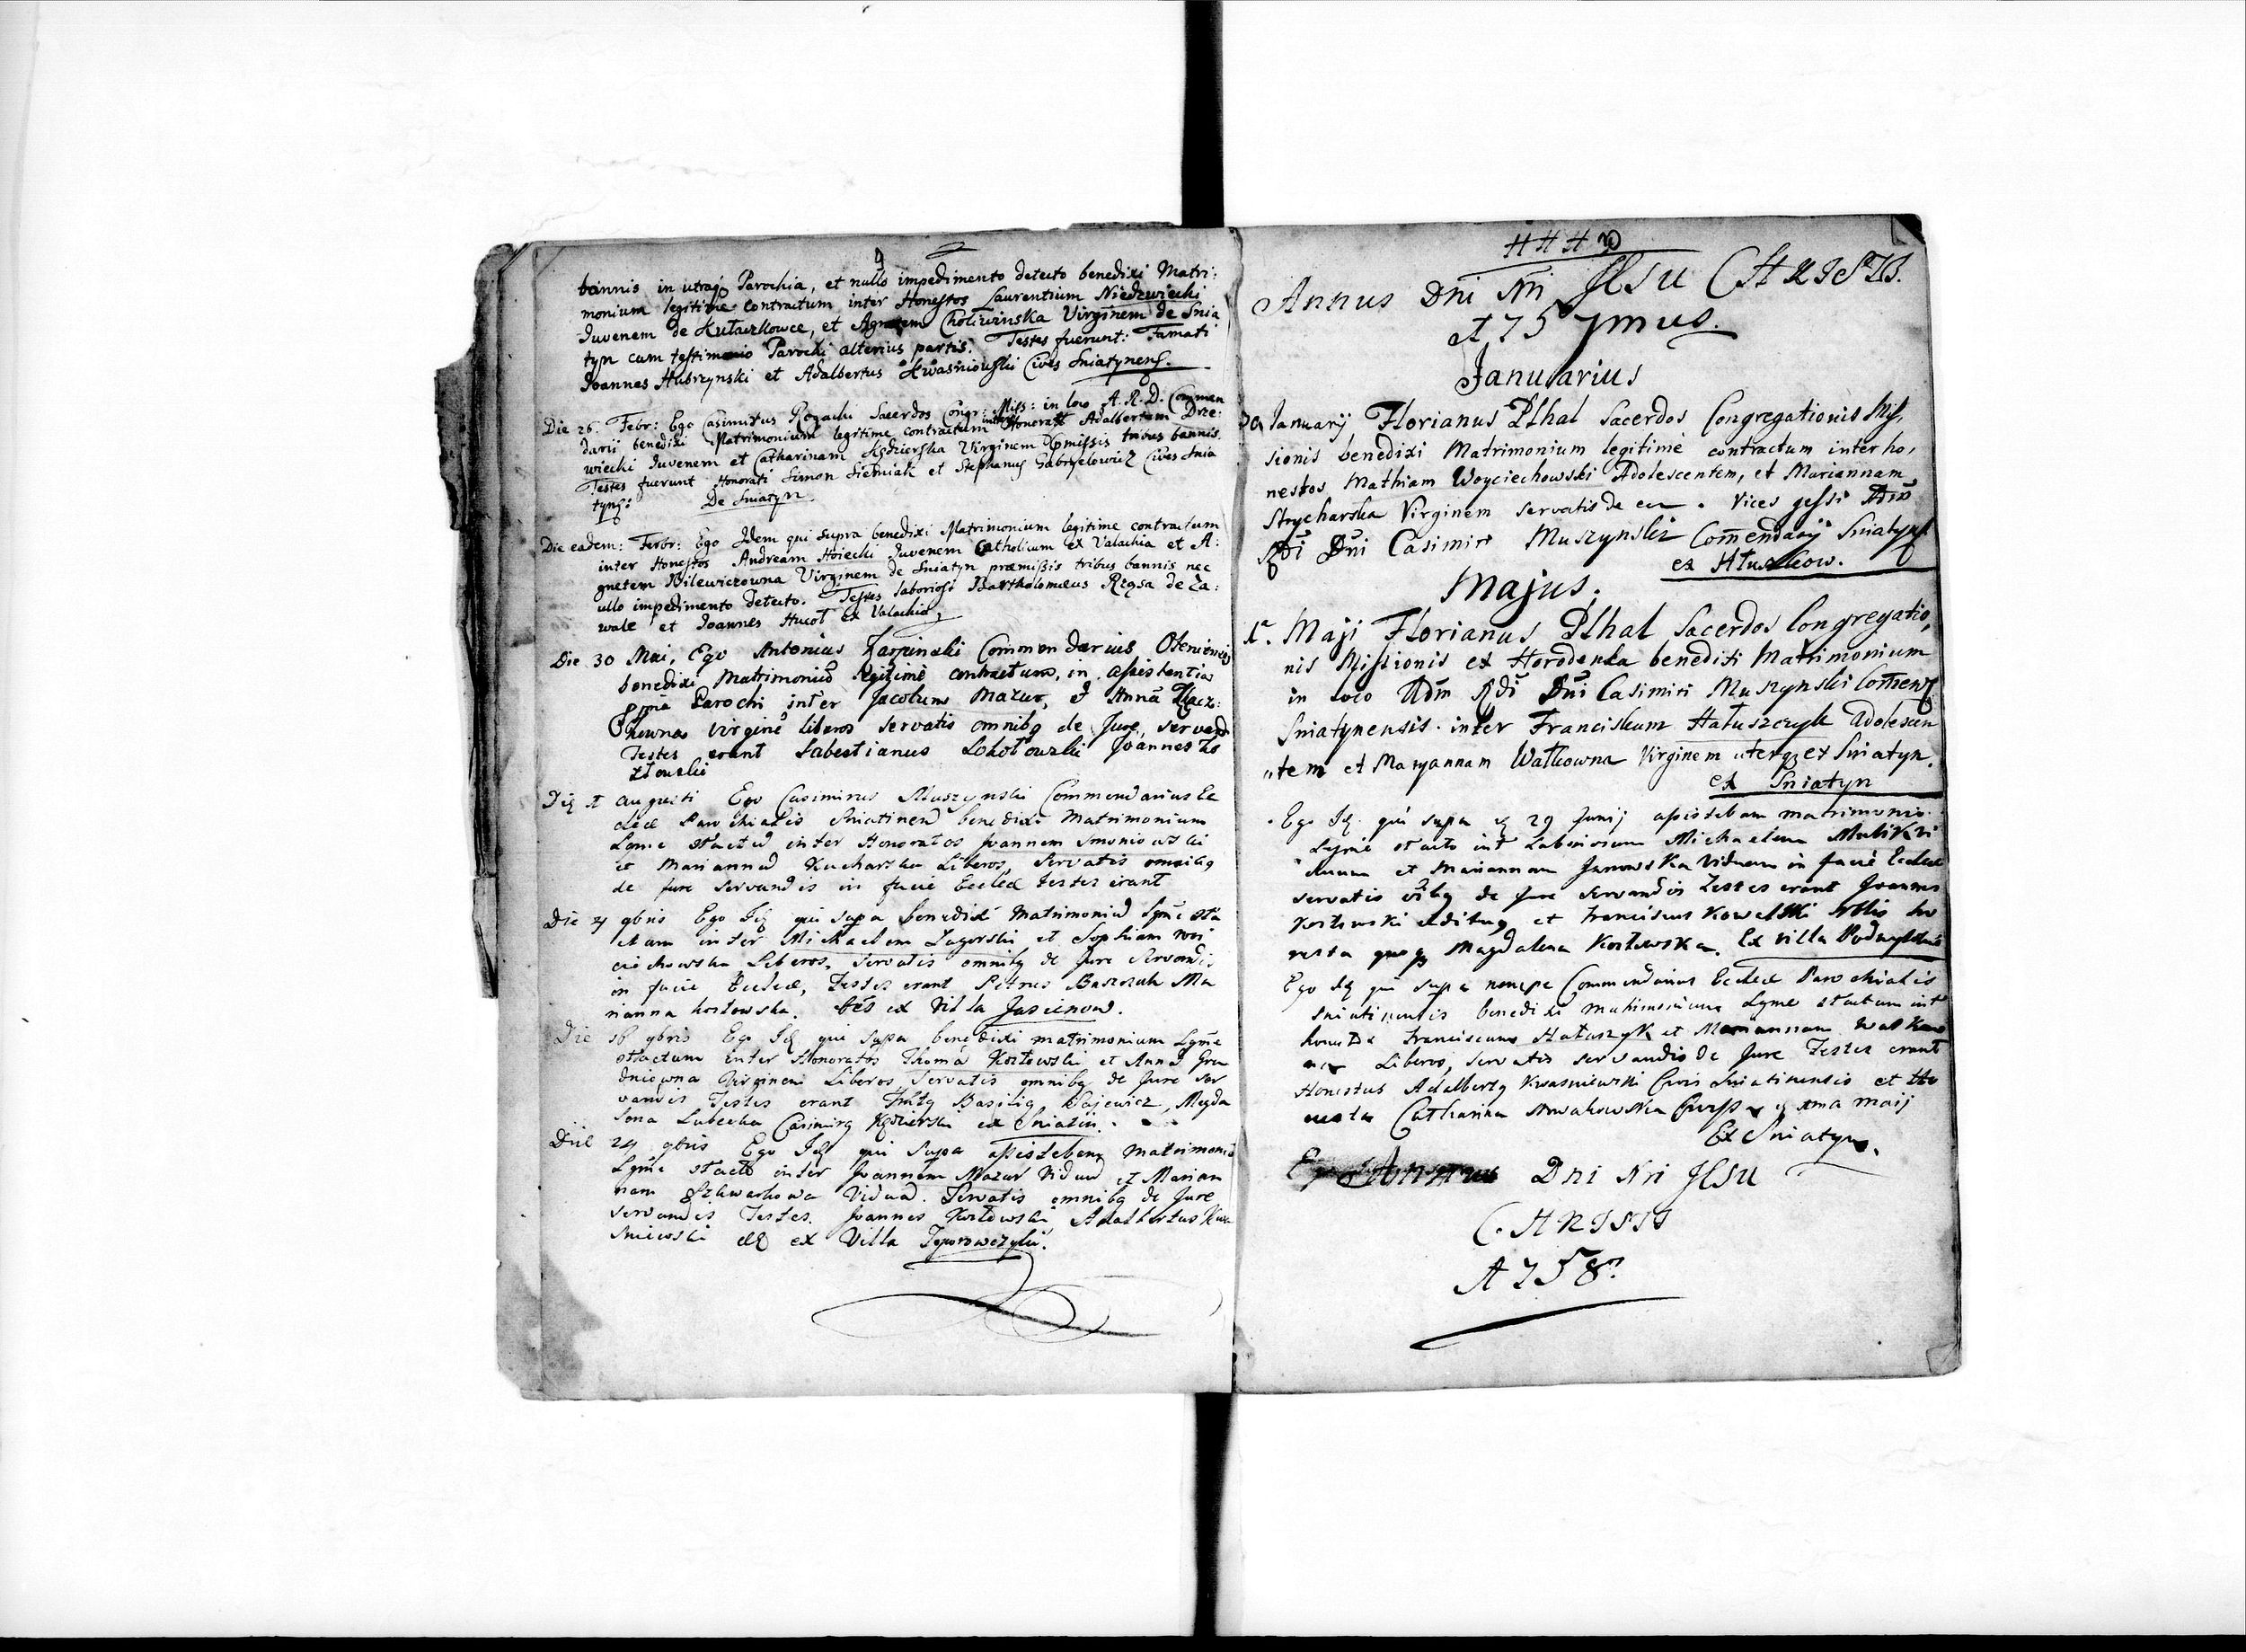 bannis in utraq Parochia, et nullo impedimento detecto benedixi Matri:
monium legitime contractum inter Honestos Laurentium Niedzwiecki
Juvenem de Kułaczkowce, et Agnetem Choliwinska Virginem de Snia
tyn cum testimonio Parochi alterius partis. Testes fuerunt: Famati
Joannes Hubrzynski et Adalbertus Kwasniowski Cives Sniatynens.
Die 26. Febr: Ego Casimirus Rogacki Sacerdos Congr: Miss: in loco A. R. D. Commen
darii benedixi Matrimonium legitime contractum inter Honorat Adalbertum Drze:
wiecki Juvenem et Catharinam Kędzierska Virginem pmissis tribus bannis.
Testes fuerunt Honorati Simon Sietniak et Stephanus Gabryelowicz Cives Snia
tyns: De Sniatyn
Die eadem: Febr: Ego Idem qui supra benedixi Matrimonium legitime contractum
inter Honestos Andream Hoiecki Juvenem Catholicum ex Valachia et A:
gnetem Bilewiczowna Virginem de Sniatyn præmissis tribus bannis nec
ullo impedimento detecto. Testes laboriosi Bartholomæus Rząsa de Za:
wale et Joannes Hucoł ex Valachia
Die 30 Mai, Ego Antonius Karpinski Commendarius
benedixi Matrimoniu legitimè contractum, in assistentia
Parochi inter Jacobum Mazur, et Anna
virginē liberos servatis omnibq de Jure, servand
Testes erant Sabestianus Sokołowski Joannes Ko
złowski
Die 1 augusti Ego Casimirus Muszynski Commendarius Ec
clæ Parochialis Sniatinen benedixi Matrimonium
Lgme ctractu inter Honoratos Joannem Smoniowski
et Marianna Kucharska Liberos, servatis omnibq
de jure servandis in facie Eccleæ testes erant
Die 4 9bris Ego Id qui supa benedixi Matrimoniu Lgme ctra
ctum inter Michaelem Zagorski et Sophiam Woi
ciechowska Liberos, servatis omnibq de Jure servandis
in facie Eccleæ, Testes erant Petrus Baszczuk Ma
rianna kozłowska. ex Villa Jasienow.
Die 18 9bris Ego Id qui supa benedixi matrimonium Lgme
ctractum inter Honoratos Thoma Kozłowski et Anna Gru
dniowna Virginem Liberos servatis omnibq de Jure ser
vandis Testes erant Basiliq Magda
lena Lubecka Casimirq Kędzierski ex Sniatin.
Die 24 9bris Ego Id qui supa assistebam matrimonio
Lgme ctracto inter Joannem Mazur Viduu et Marian
nam Vidua. Servatis omnibq de Jure
servandis Testes. Joannes Kozłowski, Adalbertus Kwa
sniewski ex Villa Toporowczyki.
Annus Dni Nri JESU CHRISTI.
1757mus.
Januarius
January Florianus Pthal Sacerdos Congregationis Mis,
sionis benedixi Matrimonium legitimè contractum inter ho,
nestos Mathiam Woyciechowski Adolescentem, et Mariannam
Strycharska Virginem servatis de eur. Vices gessi Adm
Rdi Dni Casimiri Muszynski Comendarij Sniatyns
ex Hłuszkow.
Majus.
1a. Maji Florianus Pthal Sacerdos Congregatio,
nis Missionis ex Horodenka benedixi Matrimonium
in loco Adm Rdi Dni Casimiri Muszynski Comend
Sniatynensis inter Franciskum Hałuszczyk Adolescen
tem et Maryannam Watkowna Virginem uterq ex Sniatyn.
ex Sniatyn
Ego Id qui supa d 29 Junij assistebam matrimonio
Lgme ctracto int Laboriosum Michaelem
et Mariannam Janowska Viduam in facie Eccleæ
servatis oībq de Jure servandis Testes erant Joannes
Kozłowski et Franciscus Kowalski ho
nesta quoq Magdalena Kozłowska. Ex villa
Ego Id qui supa nempe Commendarius Eccleæ Parochialis
Sniatinensis benedixi matrimonium Lgme ctractum int
Franciscum Hałuszyk et Mariannam Watkow
na Liberos, servatis servandis de Jure Testes erant
Honestus Adalbertq Kwasniewski Civis Sniatinensis et Ho
nesta Catharina Nowakowska d 1ma maij
Ex Sniatyn.
Annus Dni Nri JESU
CHRISTI
1758.